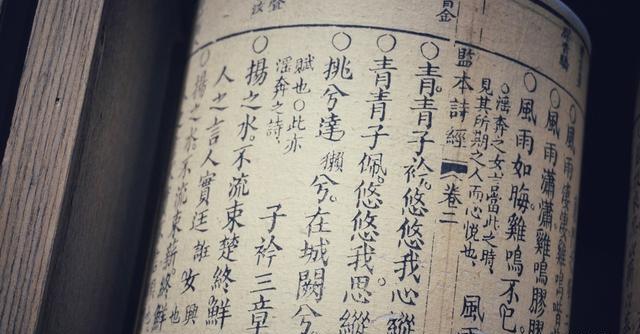 ○風雨淒淒雞鳴喈
○風雨瀟瀟雞鳴膠膠
○風雨如晦雞鳴不已。
○淫奔之女言當此之時、
見其所期之人而心悅也、
風雨
監本詩經 卷二
○青青子衿。悠悠我心縱
○青青子佩。悠悠我思縱
○挑兮達獺兮。在城闕兮。
賦也○此亦
淫奔之詩、
子衿三章
○揚之水。不流束楚終鮮
人之言人實迋誑女興也
○揚之水。不流束薪。終